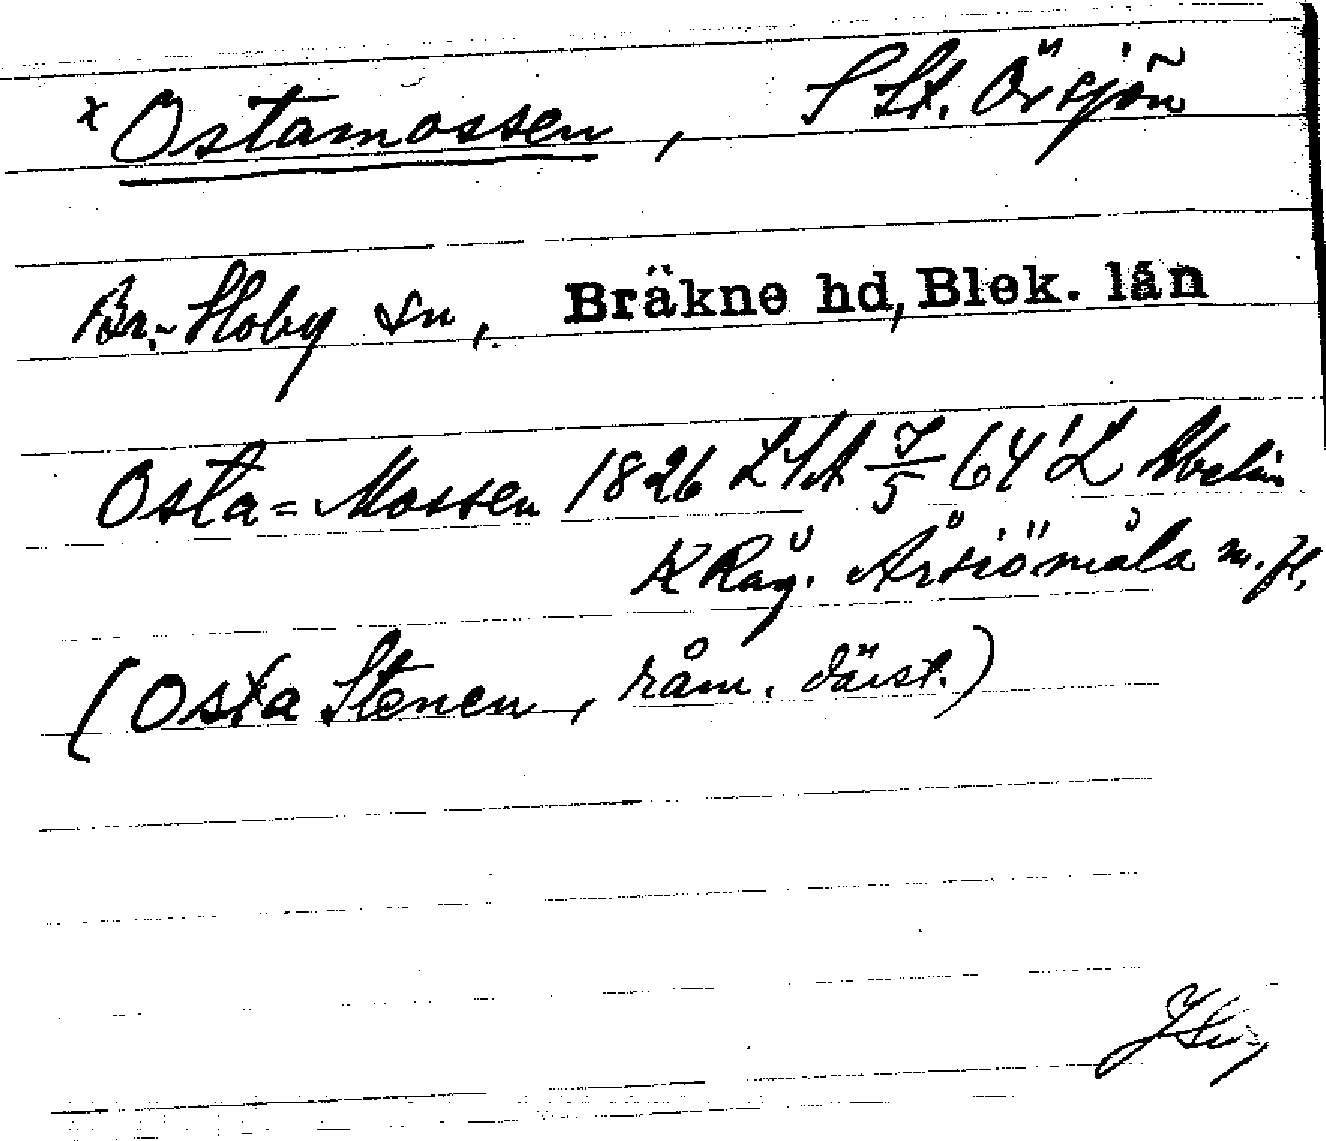 x Ostamossen, S St. Örsjön
Br.-Hoby sn, Bräkne hd, Blek. län
Osta=Mossen 1826 LSA 7/5 64' L Abelin
K Råg. Årsiömåla m. fl.
(Osta Stenen, råm. därst.)